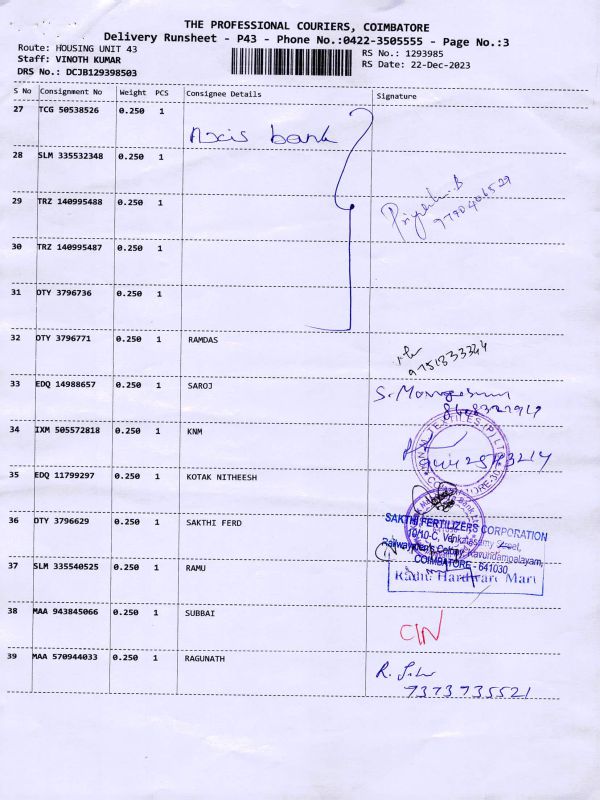 THE PROFESSIONAL COURIERS, COIMBATORE
Delivery Runsheet - P43 - Phone No.:0422-3505555 - Page No.:3
Route: HOUSING UNIT 43
RS No.: 1293985
Staff: VINOTH KUMAR
RS Date: 22-Dec-2023
DRS No.: DCJB129398503
S No Consignment No Weight PCS Consignee Details Signature
27 TCG 50538526 0.250 1
Axis bank
28 SLM 335532348 0.250 1
29 TRZ 140995488 0.250 1
30 TRZ 140995487 0.250 1
31 DTY 3796736 0.250 1
32 DTY 3796771 0.250 1 RAMDAS
9751333344
33 EDQ 14988657 0.250 1 SAROJ
34 IXM 505572818 0.250 1 KNM
35 EDQ 11799297 0.250 1 KOTAK NITHEESH
36 DTY 3796629 0.250 1 SAKTHI FERD
SAKTHI FERTILIZERS CORPORATION
10/10-C, Venkitasamy Street,
COIMBATORE - 641030
37 SLM 335540525 0.250 1 RAMU
Radhu Hardware Mart
38 MAA 943845066 0.250 1 SUBBAI
CIN
39 MAA 570944033 0.250 1 RAGUNATH
7373735521